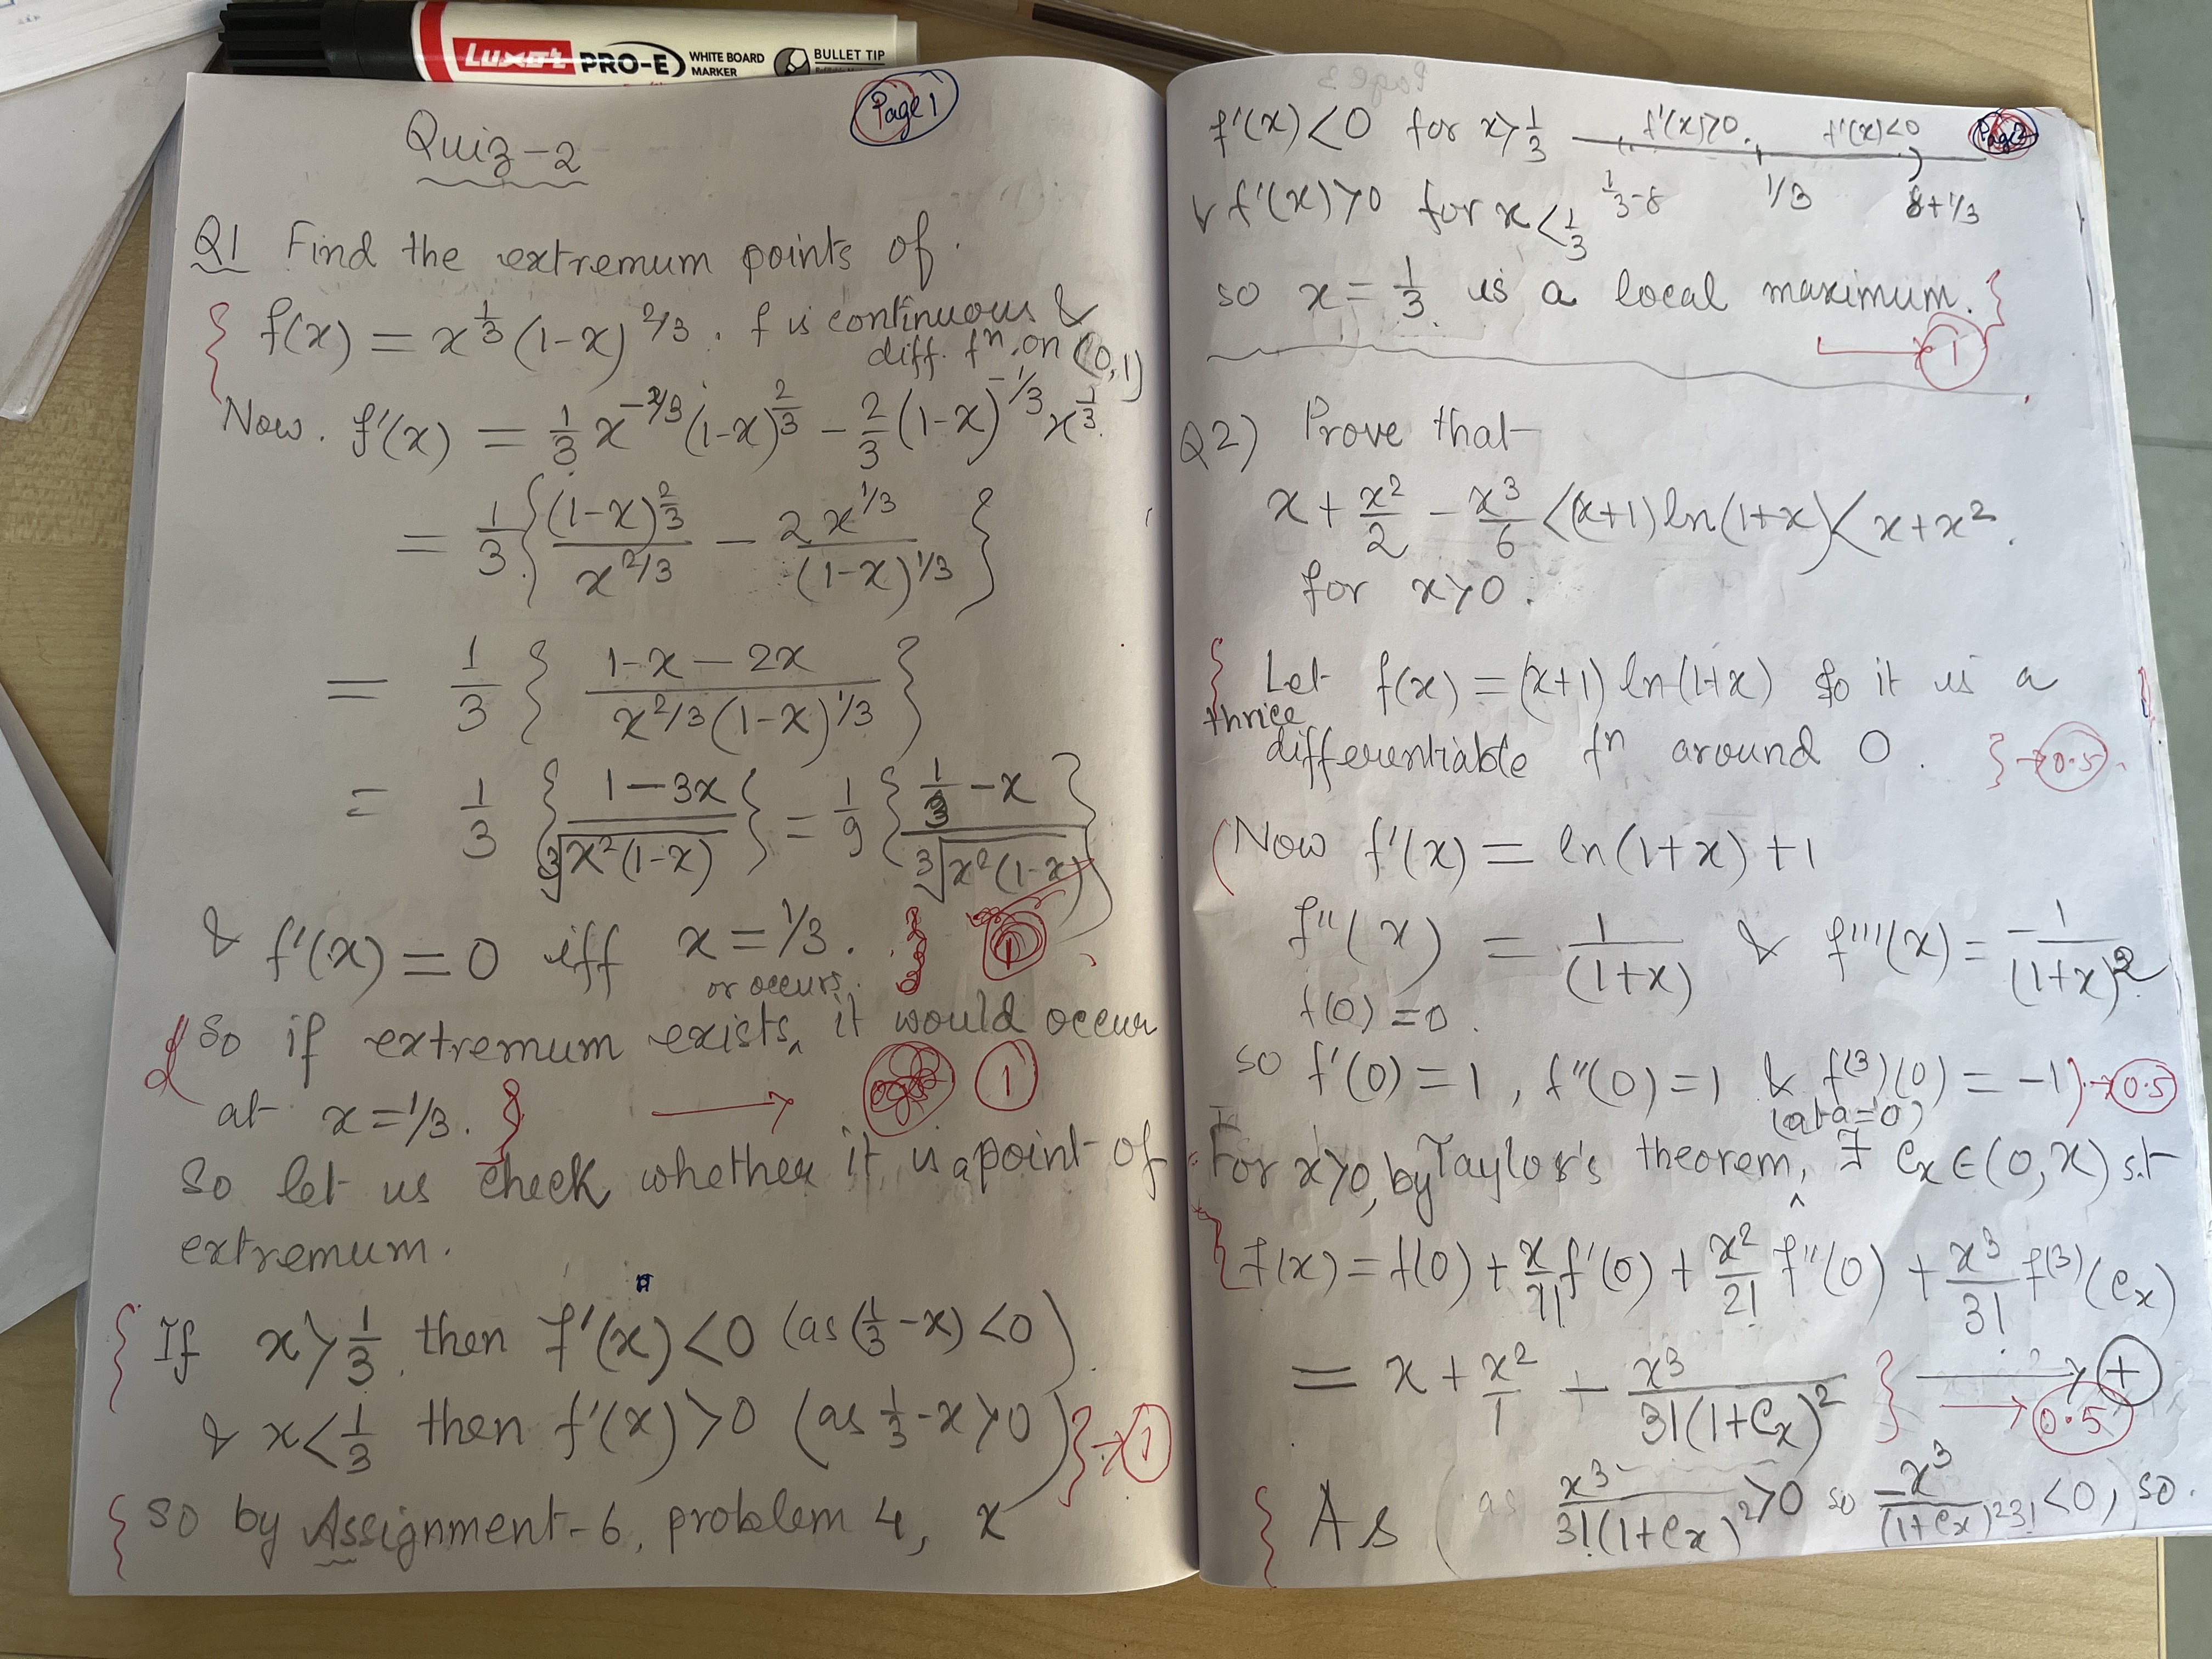 Page 1
Quiz-2
Q1 Find the extremum points of
f(x) = x^{1/3} (1-x)^{2/3}. f is continuous &
diff fn. on (0,1)
Now. f'(x) = 1/3 x^{-2/3} (1-x)^{2/3} - 2/3 (1-x)^{-1/3} x^{1/3}.
= 1/3 { (1-x)^{2/3} / x^{2/3} - 2 x^{1/3} / (1-x)^{1/3} }
= 1/3 { 1-x-2x / x^{2/3} (1-x)^{1/3} }
= 1/3 { 1-3x / ∛x²(1-x) } = 1/9 { 1/3 - x / ∛x²(1-x) }
& f'(x) = 0 iff x = 1/3.
So if extremum exists, or occurs, it would occur
at x = 1/3. → 1
So let us check whether it is a point of
extremum.
If x > 1/3, then f'(x) < 0 (as (1/3 - x) < 0)
& x < 1/3 then f'(x) > 0 (as 1/3 - x > 0)
so by Assignment-6, problem 4, x → 1
Page 2
f'(x) < 0 for x > 1/3
f'(x) > 0. f'(x) < 0
1/3-δ 1/3 δ+1/3
& f'(x) > 0 for x < 1/3
so x = 1/3. is a local maximum. → 1
Q2) Prove that
x + x²/2 - x³/6 < (x+1) ln(1+x) < x + x².
for x > 0.
Let f(x) = (x+1) ln(1+x) so it is a
thrice differentiable fn around 0. → 0.5
(Now f'(x) = ln(1+x) + 1
f''(x) = 1/(1+x) & f'''(x) = -1/(1+x)²
f(0) = 0.
so f'(0) = 1, f''(0) = 1 & f^{(3)}(0) = -1) → 0.5
For x > 0, by Taylor's theorem, (at a=0), ∃ c_x ∈ (0, x) s.t
f(x) = f(0) + x/1! f'(0) + x²/2! f''(0) + x³/3! f^{(3)}(c_x)
= x + x²/1 + - x³/3!(1+c_x)² → 0.5
As (as x³/3!(1+c_x)² > 0 so -x³/(1+c_x)²3! < 0, so.
LUXOR PRO-E WHITE BOARD MARKER BULLET TIP